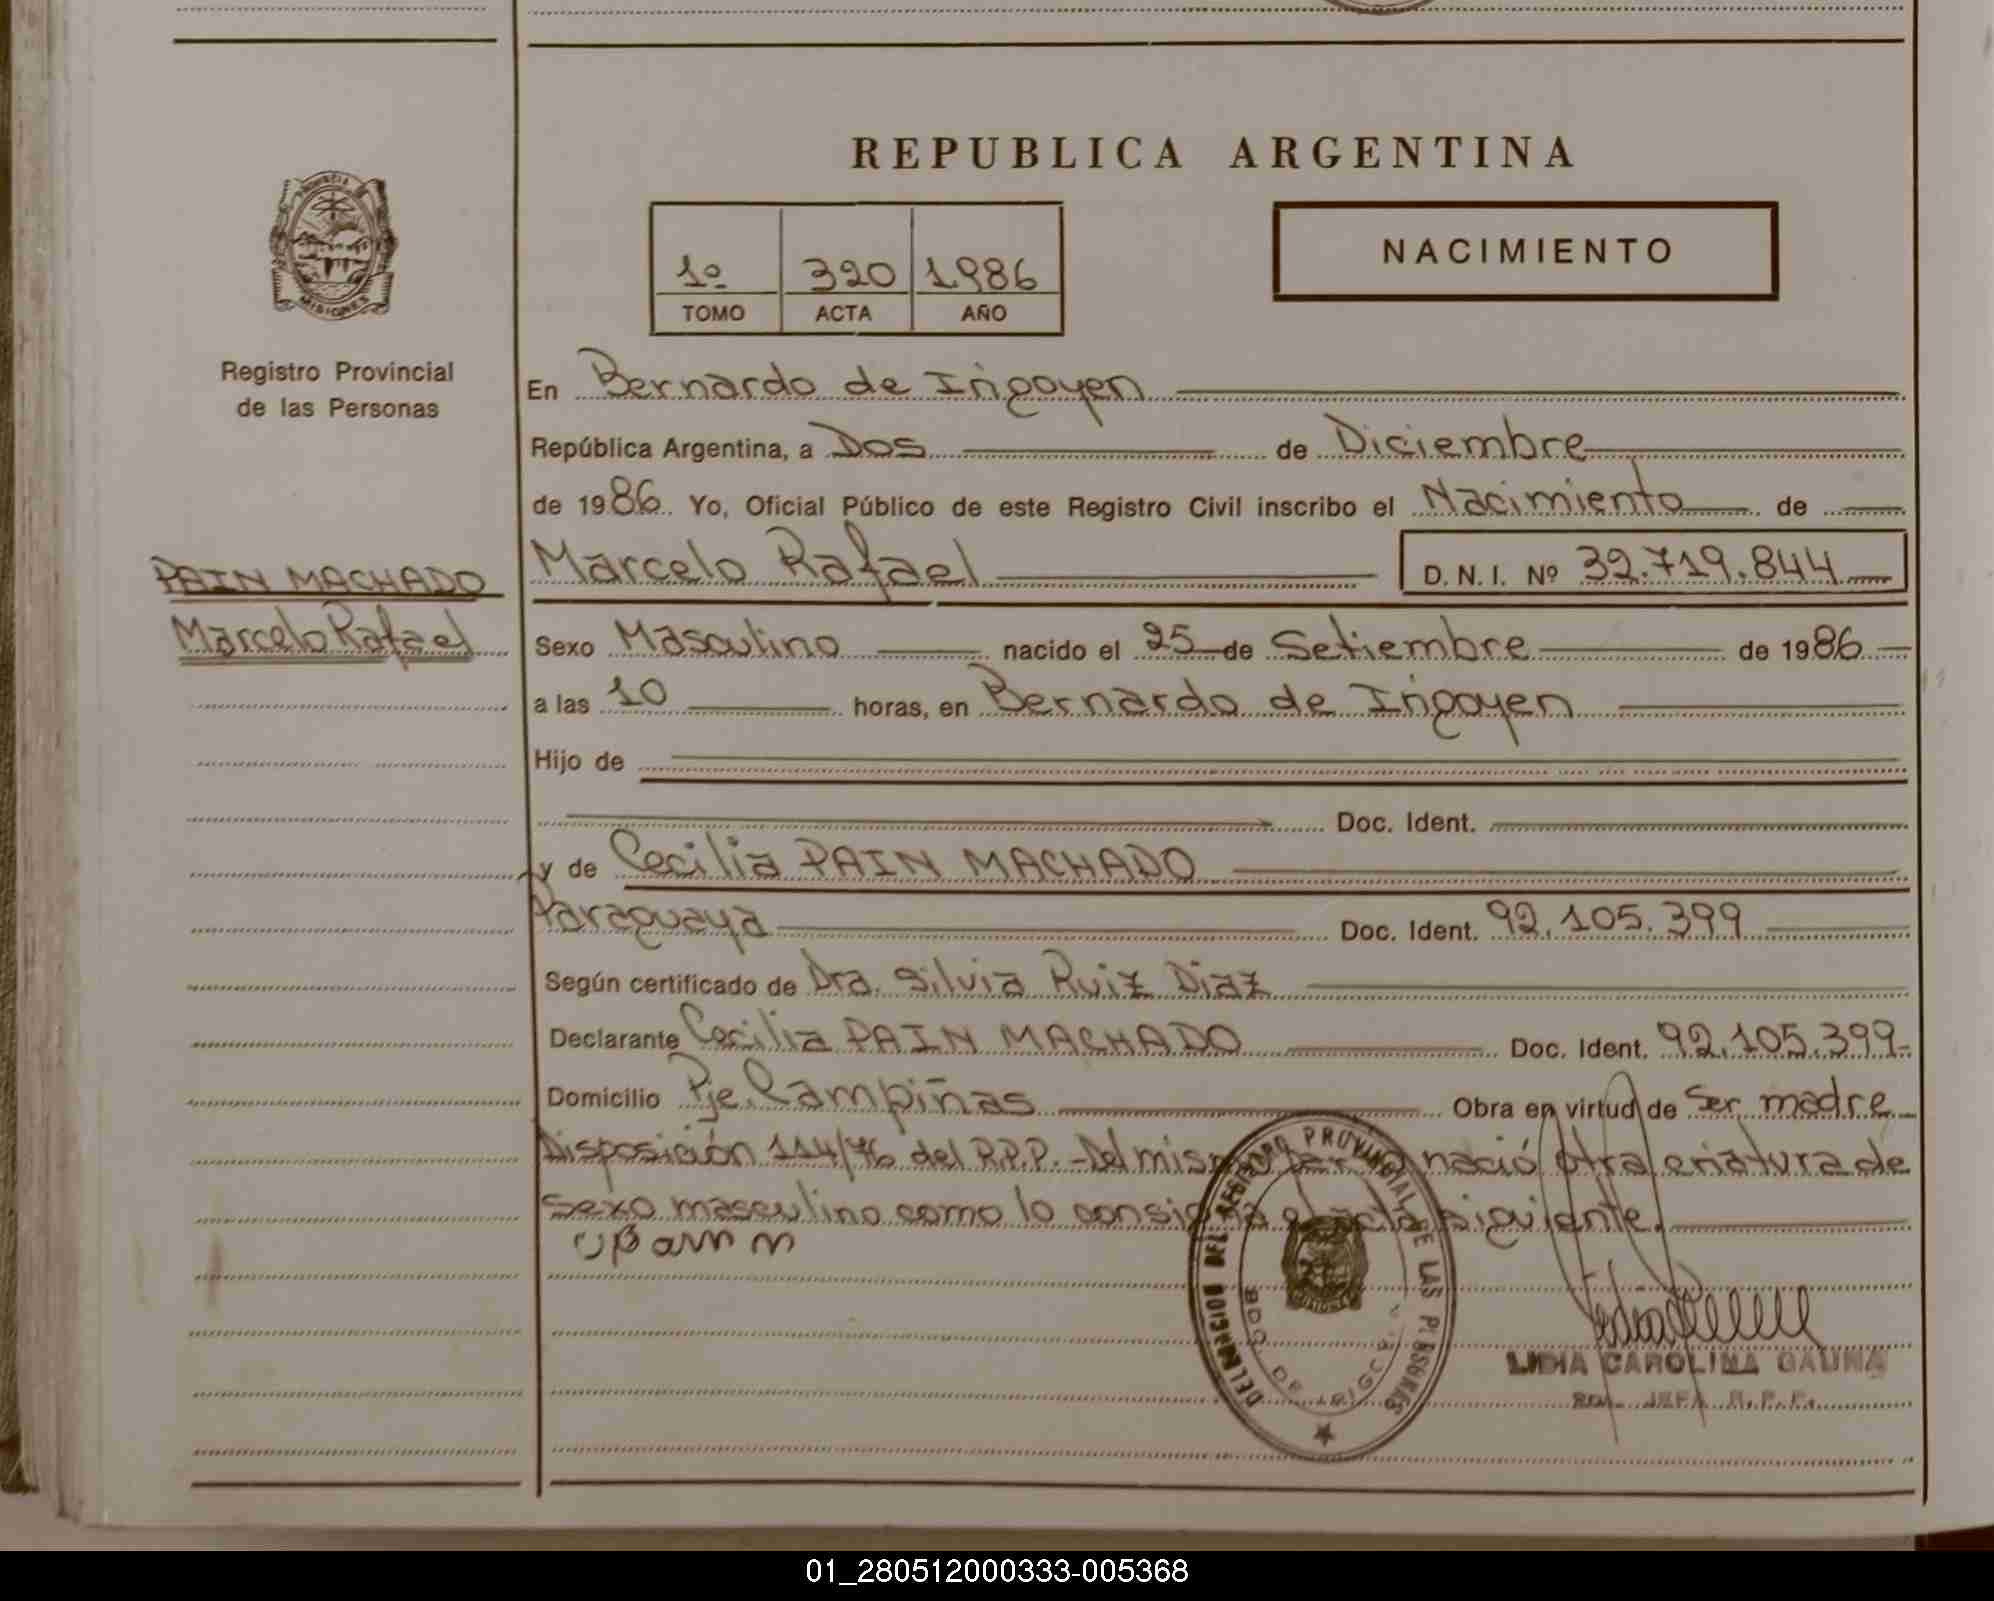 REPUBLICA ARGENTINA
NACIMIENTO
1º 320 1986
TOMO ACTA AÑO
PROVINCIA DE
MISIONES
Registro Provincial
de las Personas
PAIN MACHADO
Marcelo Rafael
En Bernardo de Irigoyen
República Argentina, a Dos de Diciembre
de 1986. Yo, Oficial Público de este Registro Civil inscribo el Nacimiento de
Marcelo Rafael D. N. I. Nº 32.719.844
Sexo Masculino nacido el 25 de Setiembre de 1986
a las 10 horas, en Bernardo de Irigoyen
Hijo de
Doc. Ident.
y de Cecilia PAIN MACHADO
Paraguaya Doc. Ident. 92.105.399
Según certificado de Dra. Silvia Ruiz Diaz
Declarante Cecilia PAIN MACHADO Doc. Ident. 92.105.399-
Domicilio Pje. Campiñas Obra en virtud de Ser madre
Disposición 114/76 del R.P.P.-Del mismo parto nació otra criatura de
sexo masculino como lo consigna el acta siguiente.
DELEGACION DEL REGISTRO PROVINCIAL DE LAS PERSONAS
BDO. DE IRIGOYEN
LIDIA CAROLINA GAUNA
JEFA R. P. P.
01_280512000333-005368